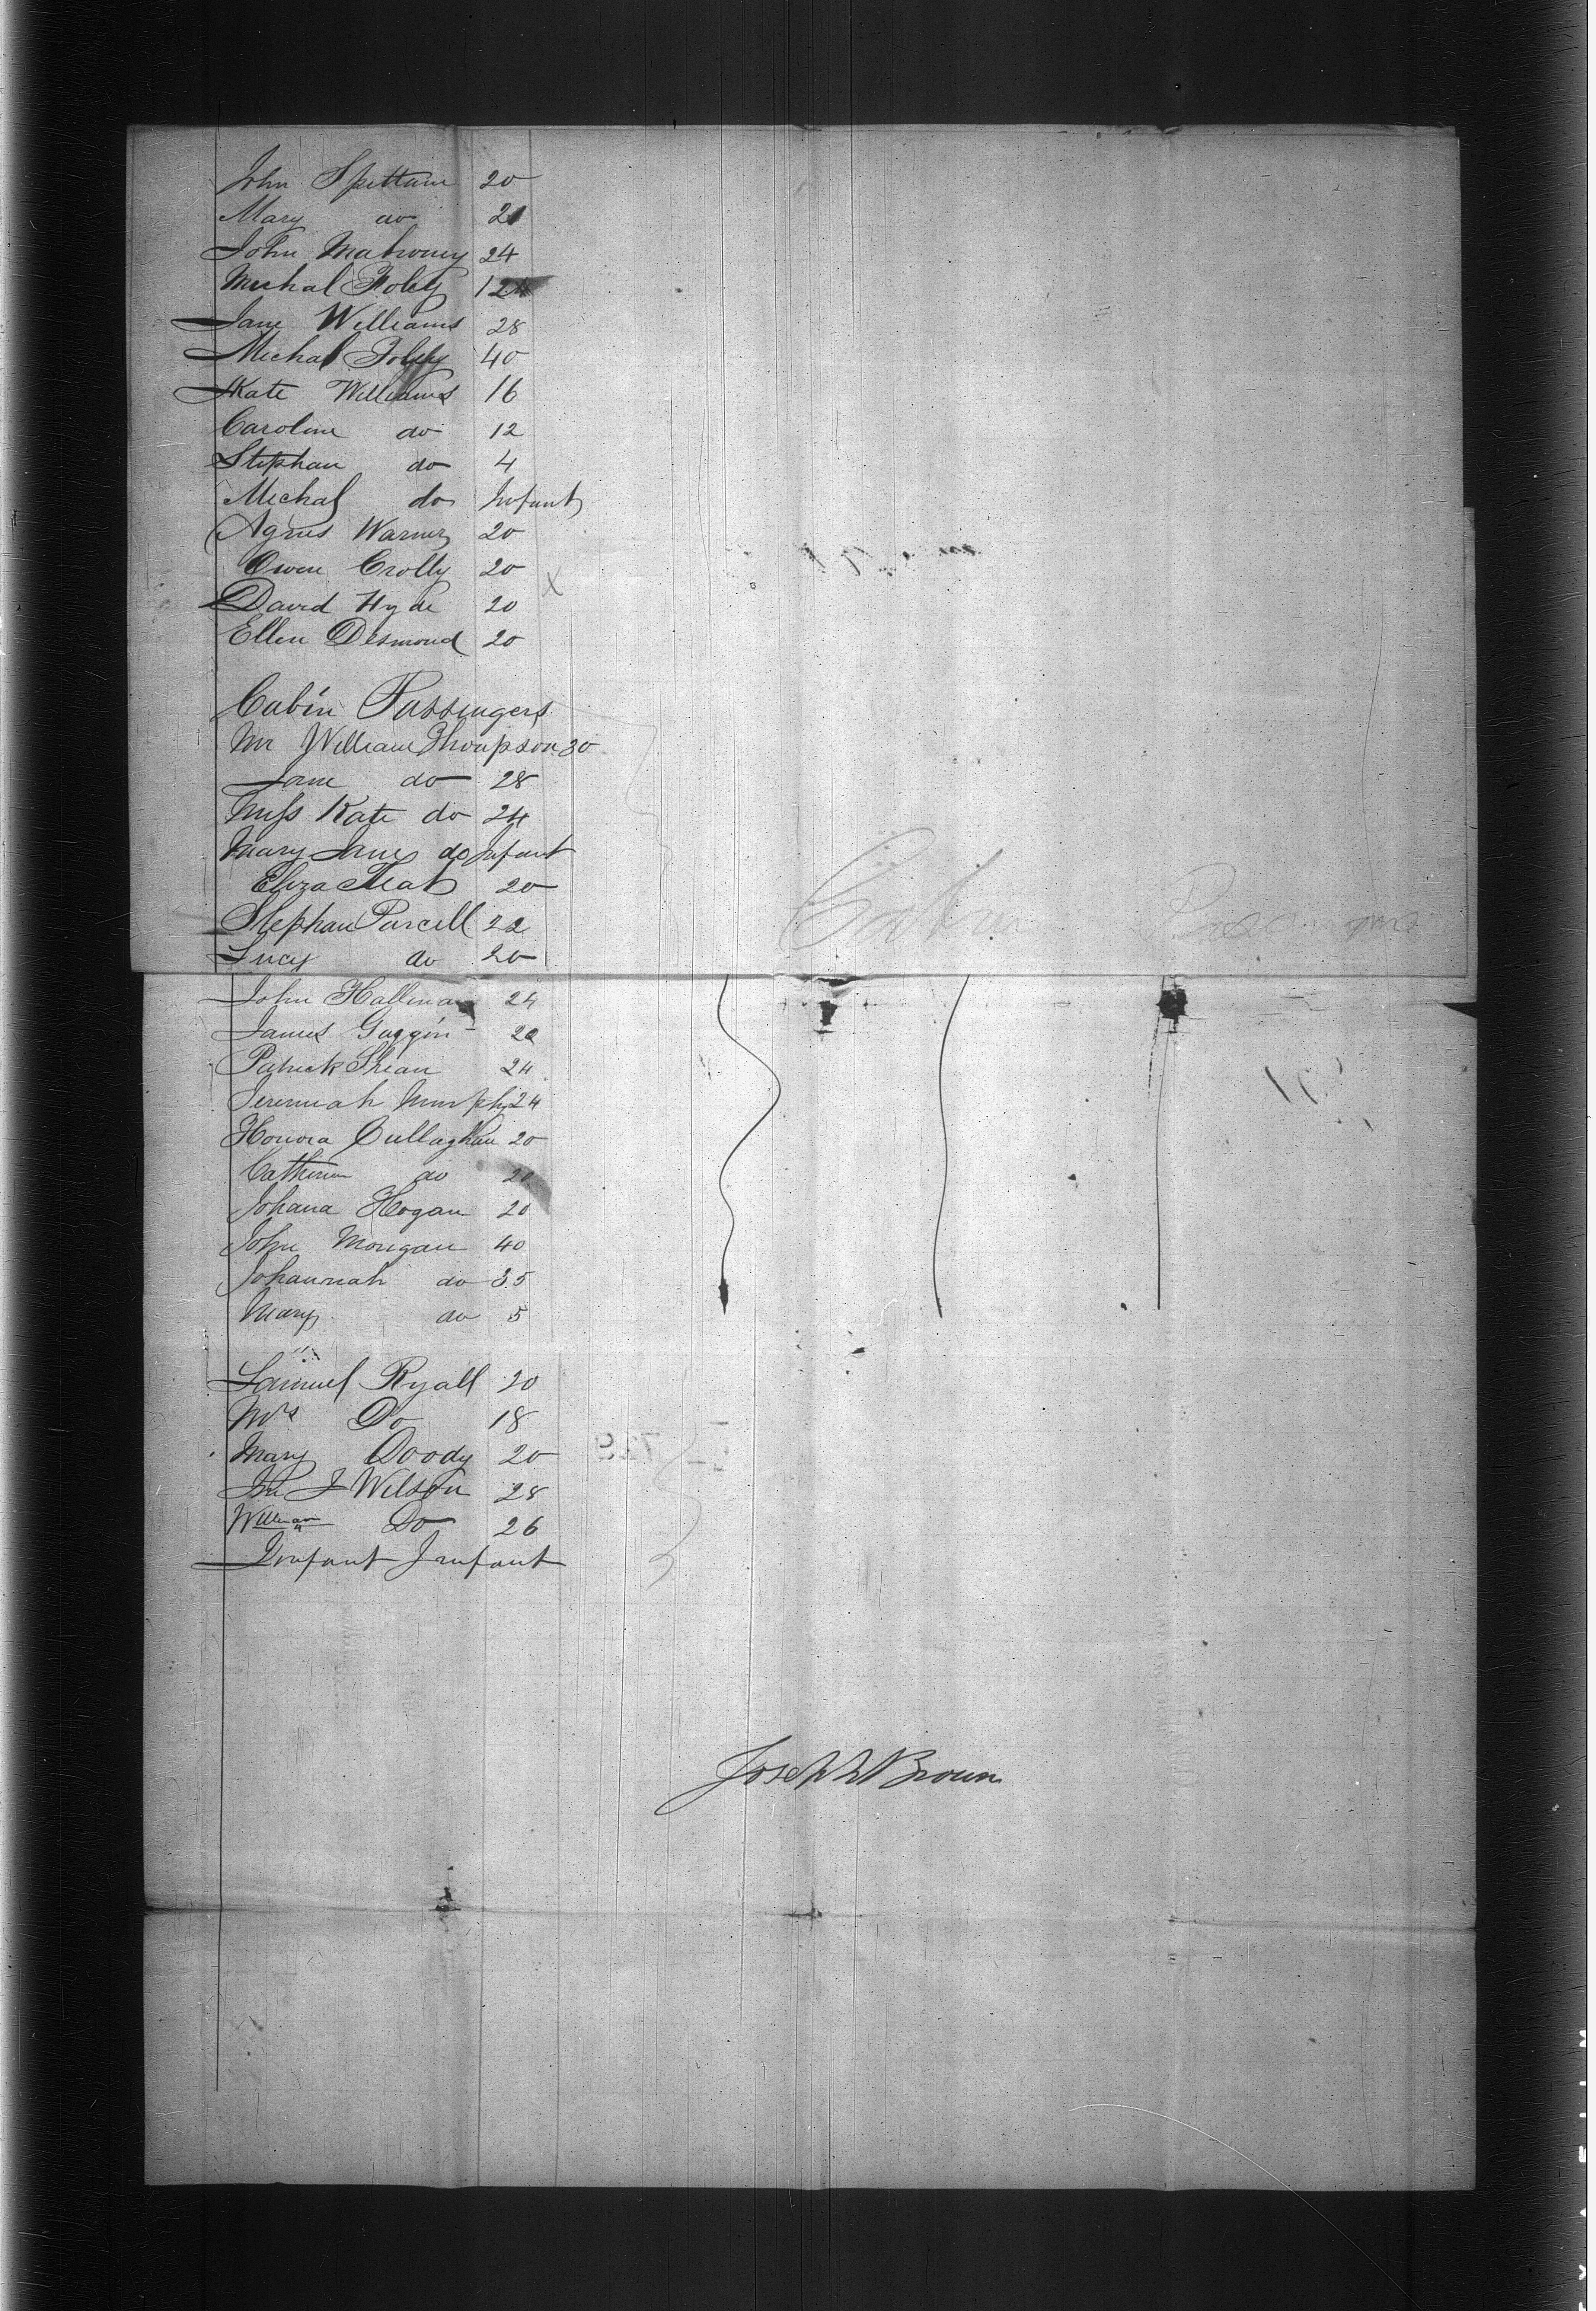 John Spettaine 20
Mary do 21
John Mahoney 24
Michal Foley 24
Jane Williams 28
Michal Foley 40
Kate Williams 16
Caroline do 12
Stephan do 4
Michal do Infant
Agnes Warner 20
Owen Crolly 20
David Hyde 20 X
Ellen Desmond 20
Cabin Passengers
Mr William Thompson 30
Jane do 28
Miss Kate do 24
Mary Jane do Infant
Eliza 20
Stephan Purcell 22
Cabin Passengers
Lucy do 20
John Hallinan 24
James Guggin 22
Patrick Shean 24
Jeremiah Murphy 24
Honora Cullaghan 20
Catherin do 20
Johana Hogan 20
John Morigan 40
Johannah do 35
Mary do 5
Samuel Ryall 20
Mrs Do 18
Mary Doody 20
J Wilson 28
William Do 26
Innfant Innfant
Joseph Brown